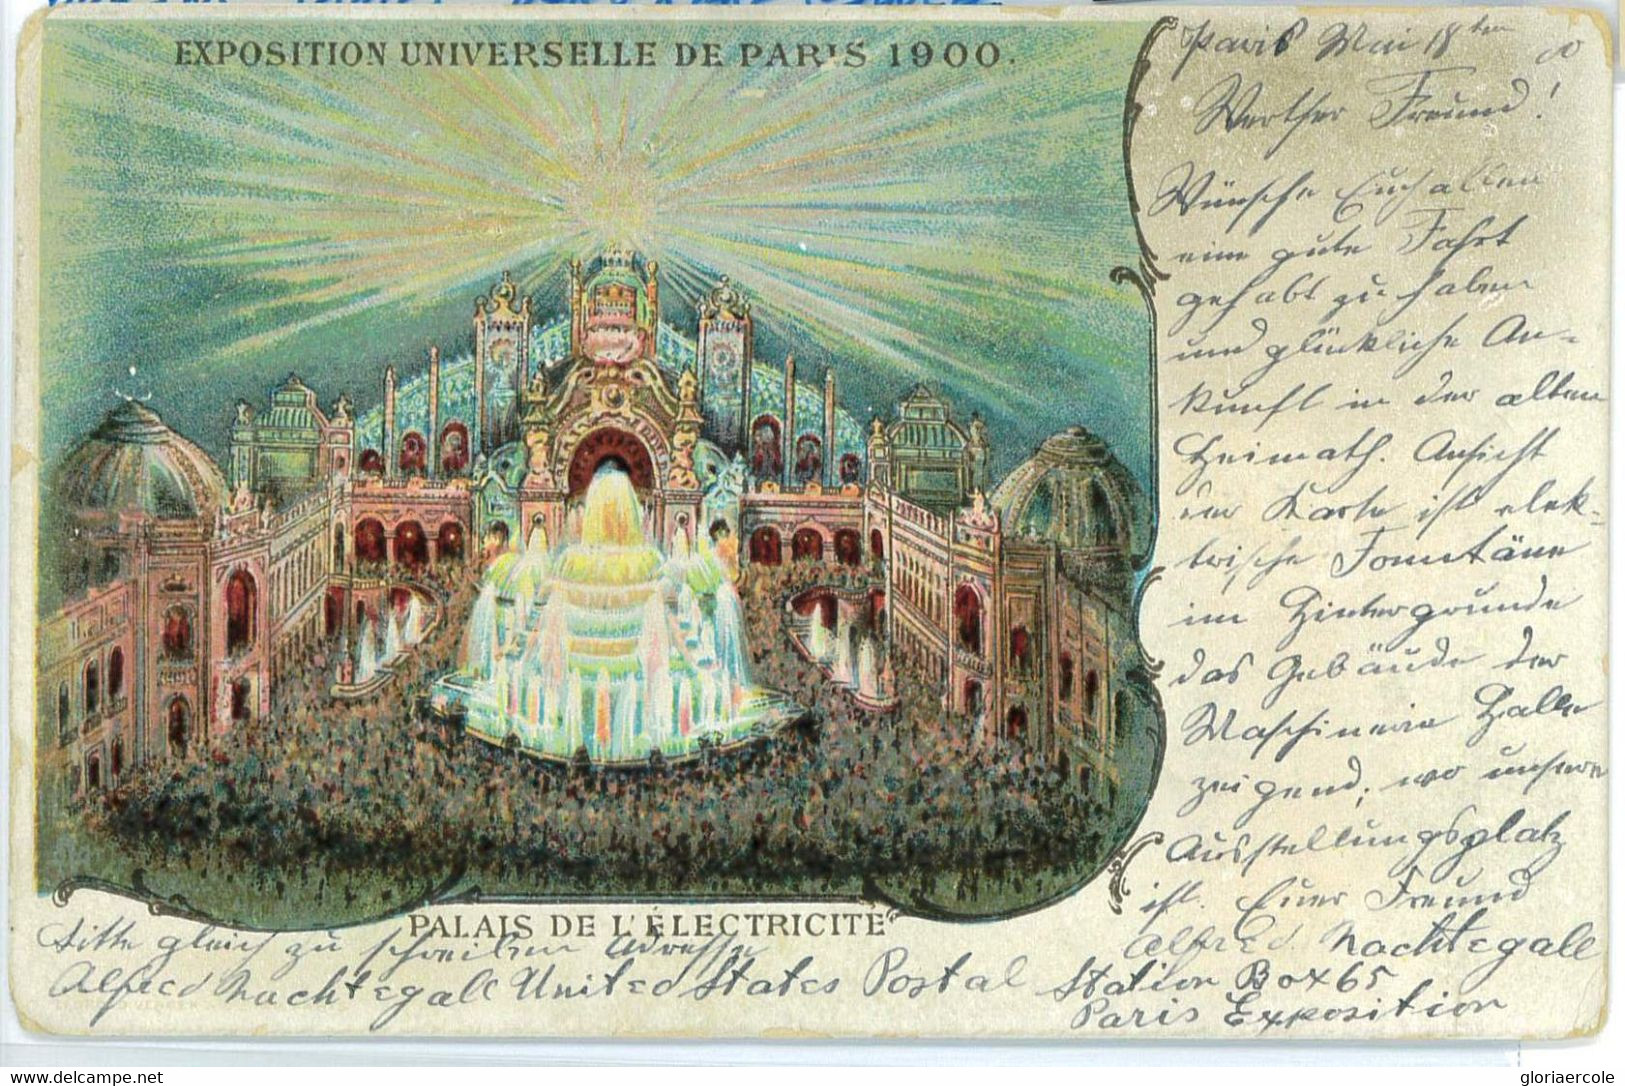 EXPOSITION UNIVERSELLE DE PARIS 1900.
Paris Mai 18ten 00
Werther Freund!
Wünsche Euch allen
eine gute Fahrt
gehabt zu haben
und glückliche An=
kunft in der alten
Heimath. Ansicht
der Karte ist elek=
trische Fontäne
im Hintergrunde
das Gebäude der
Maschinerie Halle
zeigend, wo unsere
Ausstellungsplatz
ist. Euer Freund
Alfred Nachtegall
PALAIS DE L'ÉLECTRICITÉ
Bitte gleich zu schreiben Adresse
Alfred Nachtegall United States Postal Station Box 65
Paris Exposition
delcampe.net
gloriaercole